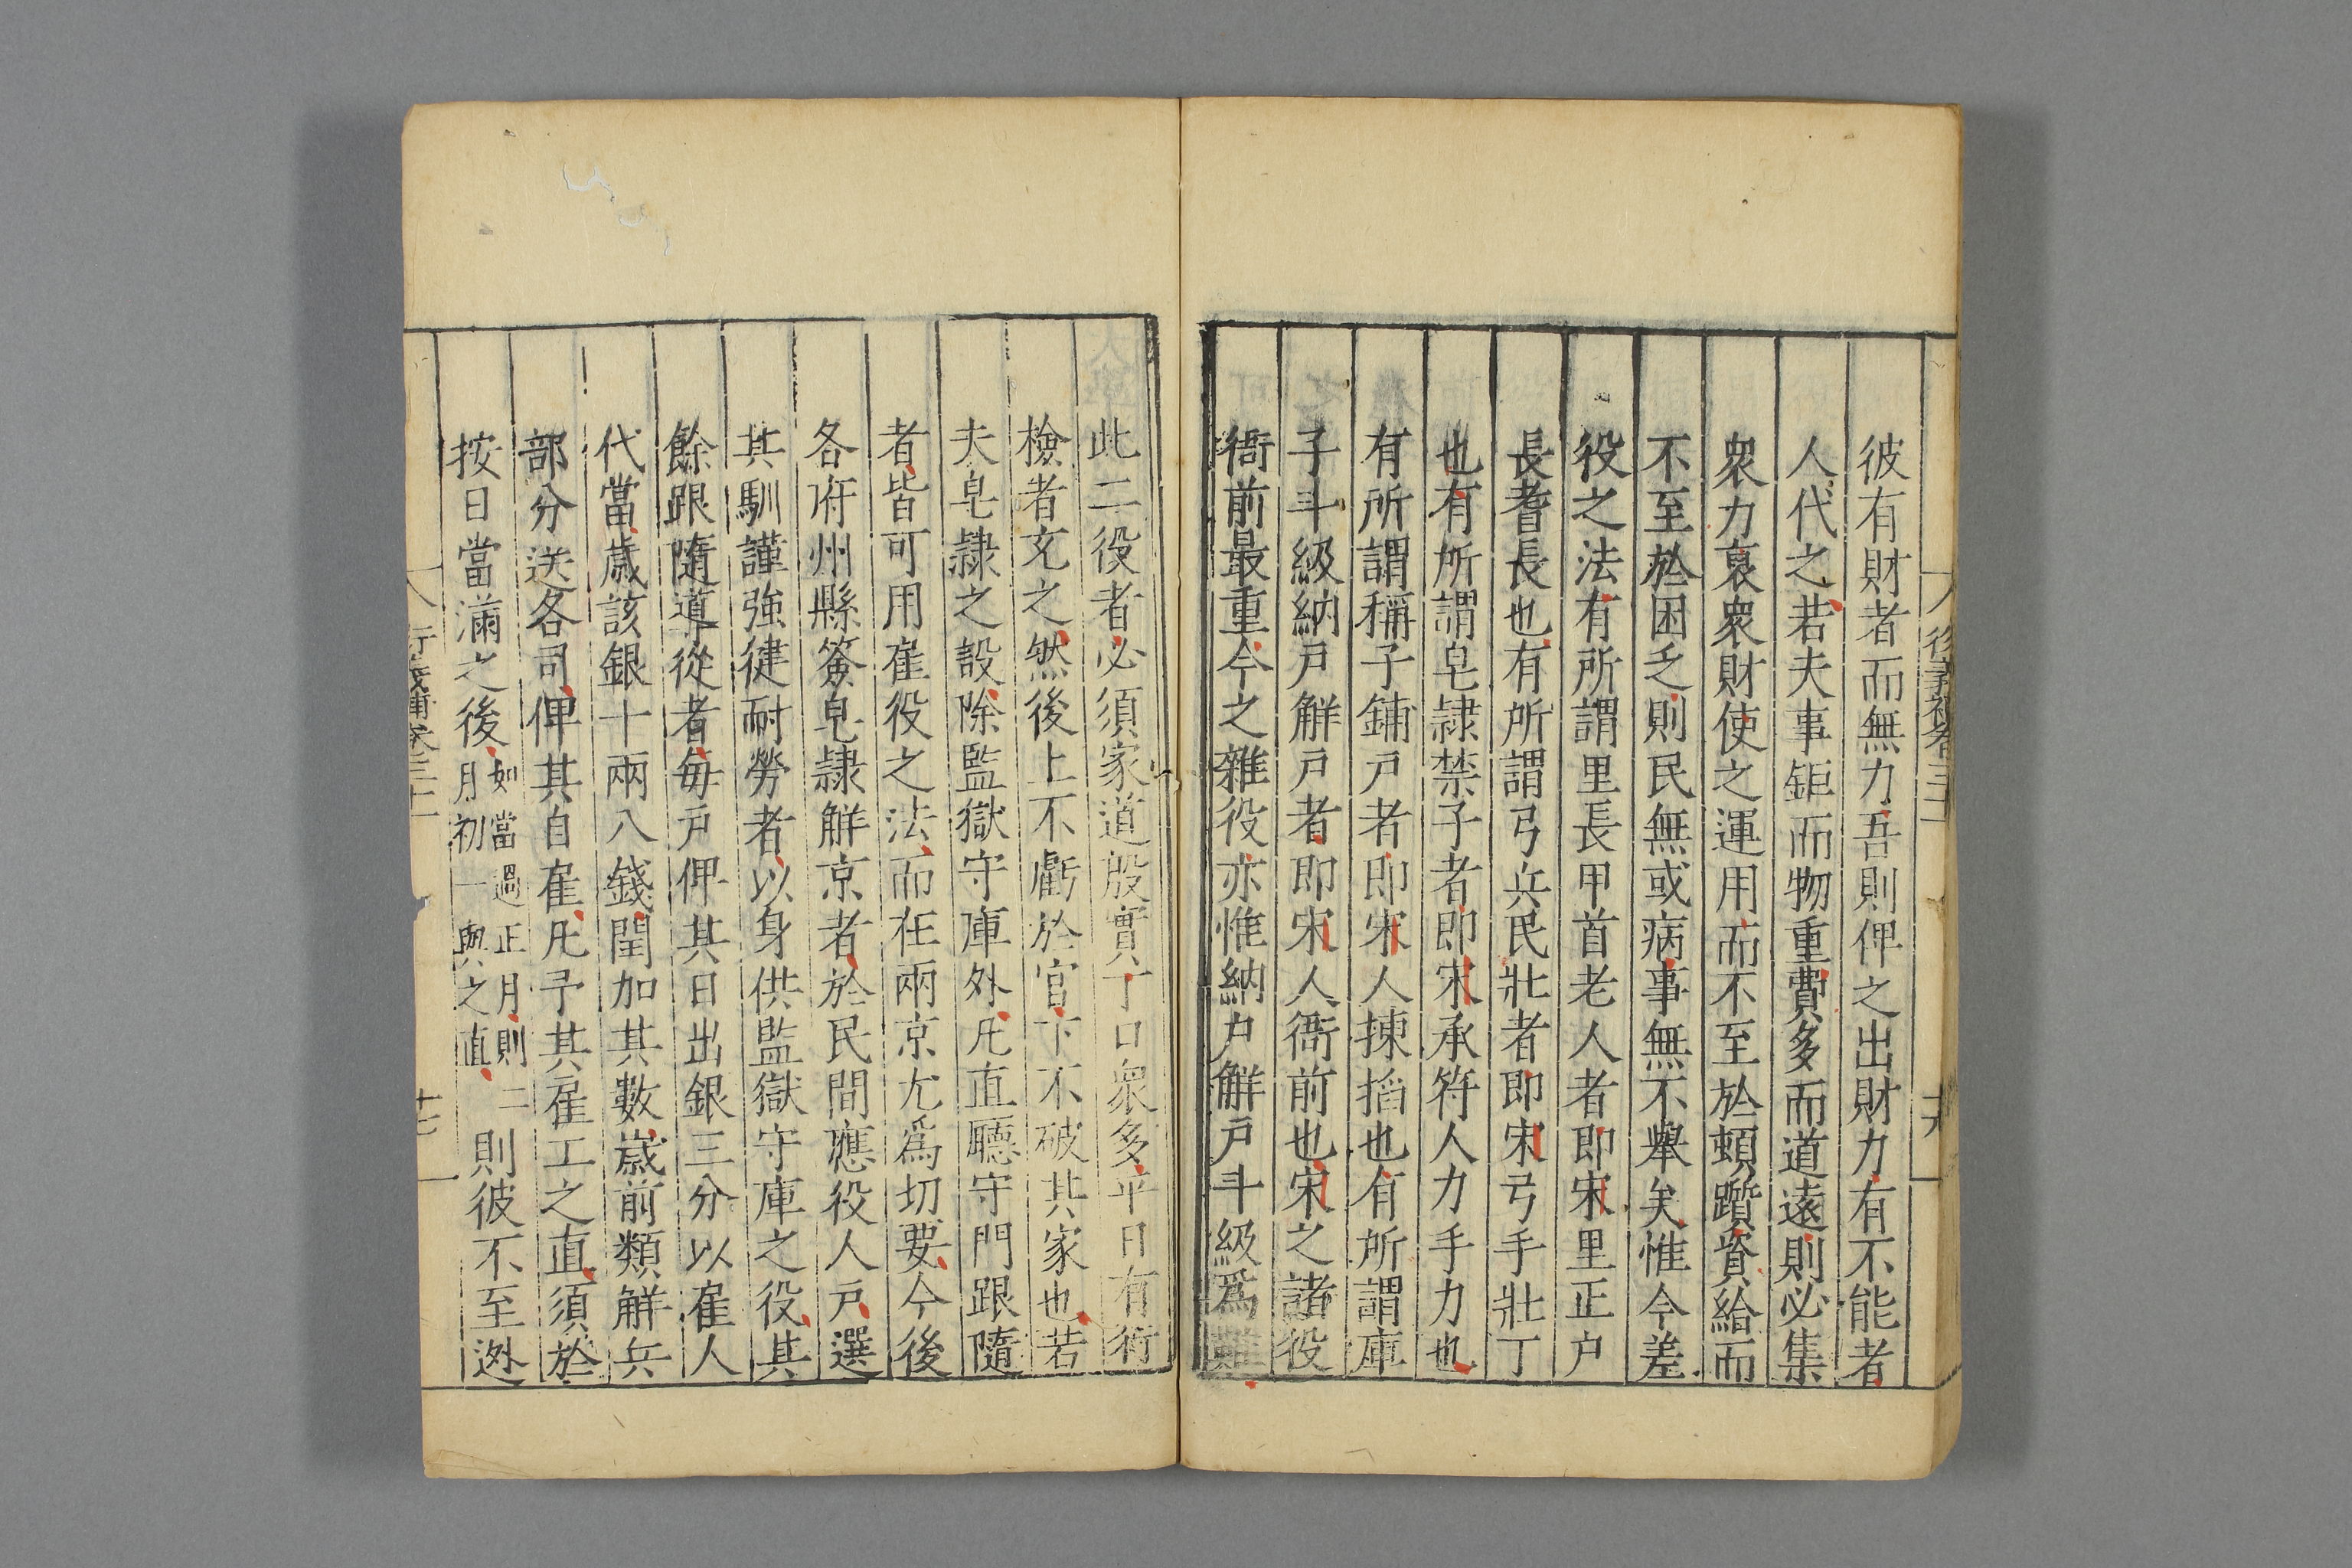 彼有財者而無力吾則俾之出財力有不能者
人代之若夫事鉅而物重費多而道遠則必集
衆力裒衆財使之運用而不至於頓躓資給而
不至於困乏則民無或病事無不舉矣惟今差
役之法有所謂里長甲首老人者即宋里正户
長耆長也有所謂弓兵民壯者即宋弓手壯丁
也有所謂皂隷禁子者即宋承符人力手力也
有所謂稱子鋪戸者即宋人揀搯也有所謂庫
子斗級納戸解戸者即宋人衙前也宋之諸役
衙前最重今之雜役亦惟納户解戸斗級爲難
此二役者必須家道殷實丁口衆多平日有行
檢者充之然後上不虧於官下不破其家也若
夫皂隷之設除監獄守庫外凡直聽守門跟隨
者皆可用雇役之法而在兩京尤爲切要今後
各府州縣簽皂隷解京者於民間應役人戸選
其馴謹強健耐勞者以身供監獄守庫之役其
餘跟隨導從者每戸俾其日出銀三分以雇人
代當歲該銀十兩八錢閏加其數歲前類解兵
部分送各司俾其自雇凡予其雇工之直須於
按日當滿之後如當過正月則二月初一與之直則彼不至逃